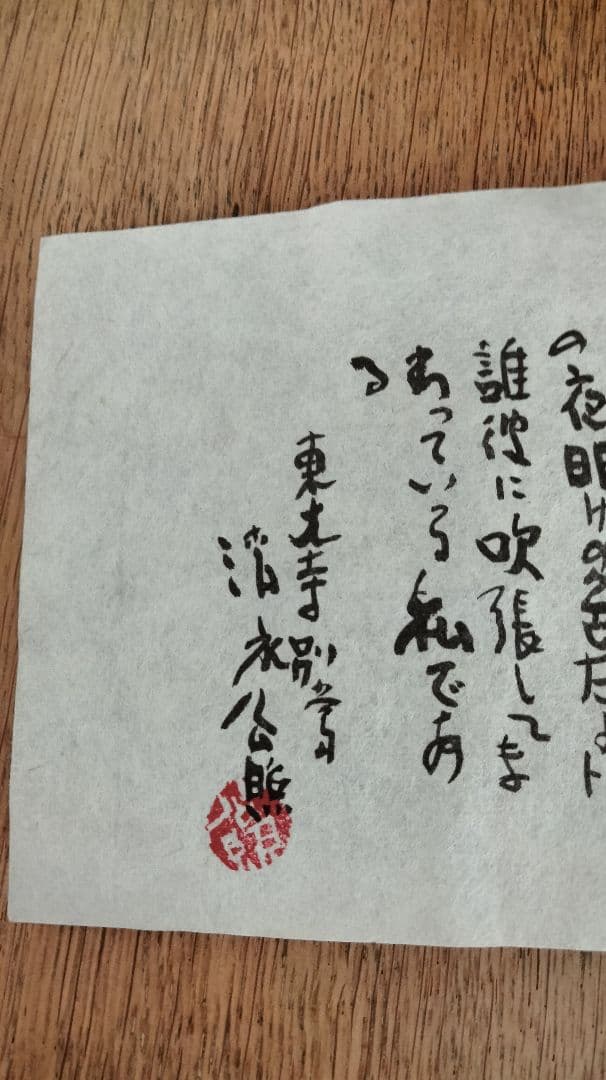 の夜明けの名だよト
誰彼に吹張してま
わっている私であ
る
東大寺別当
清水公照